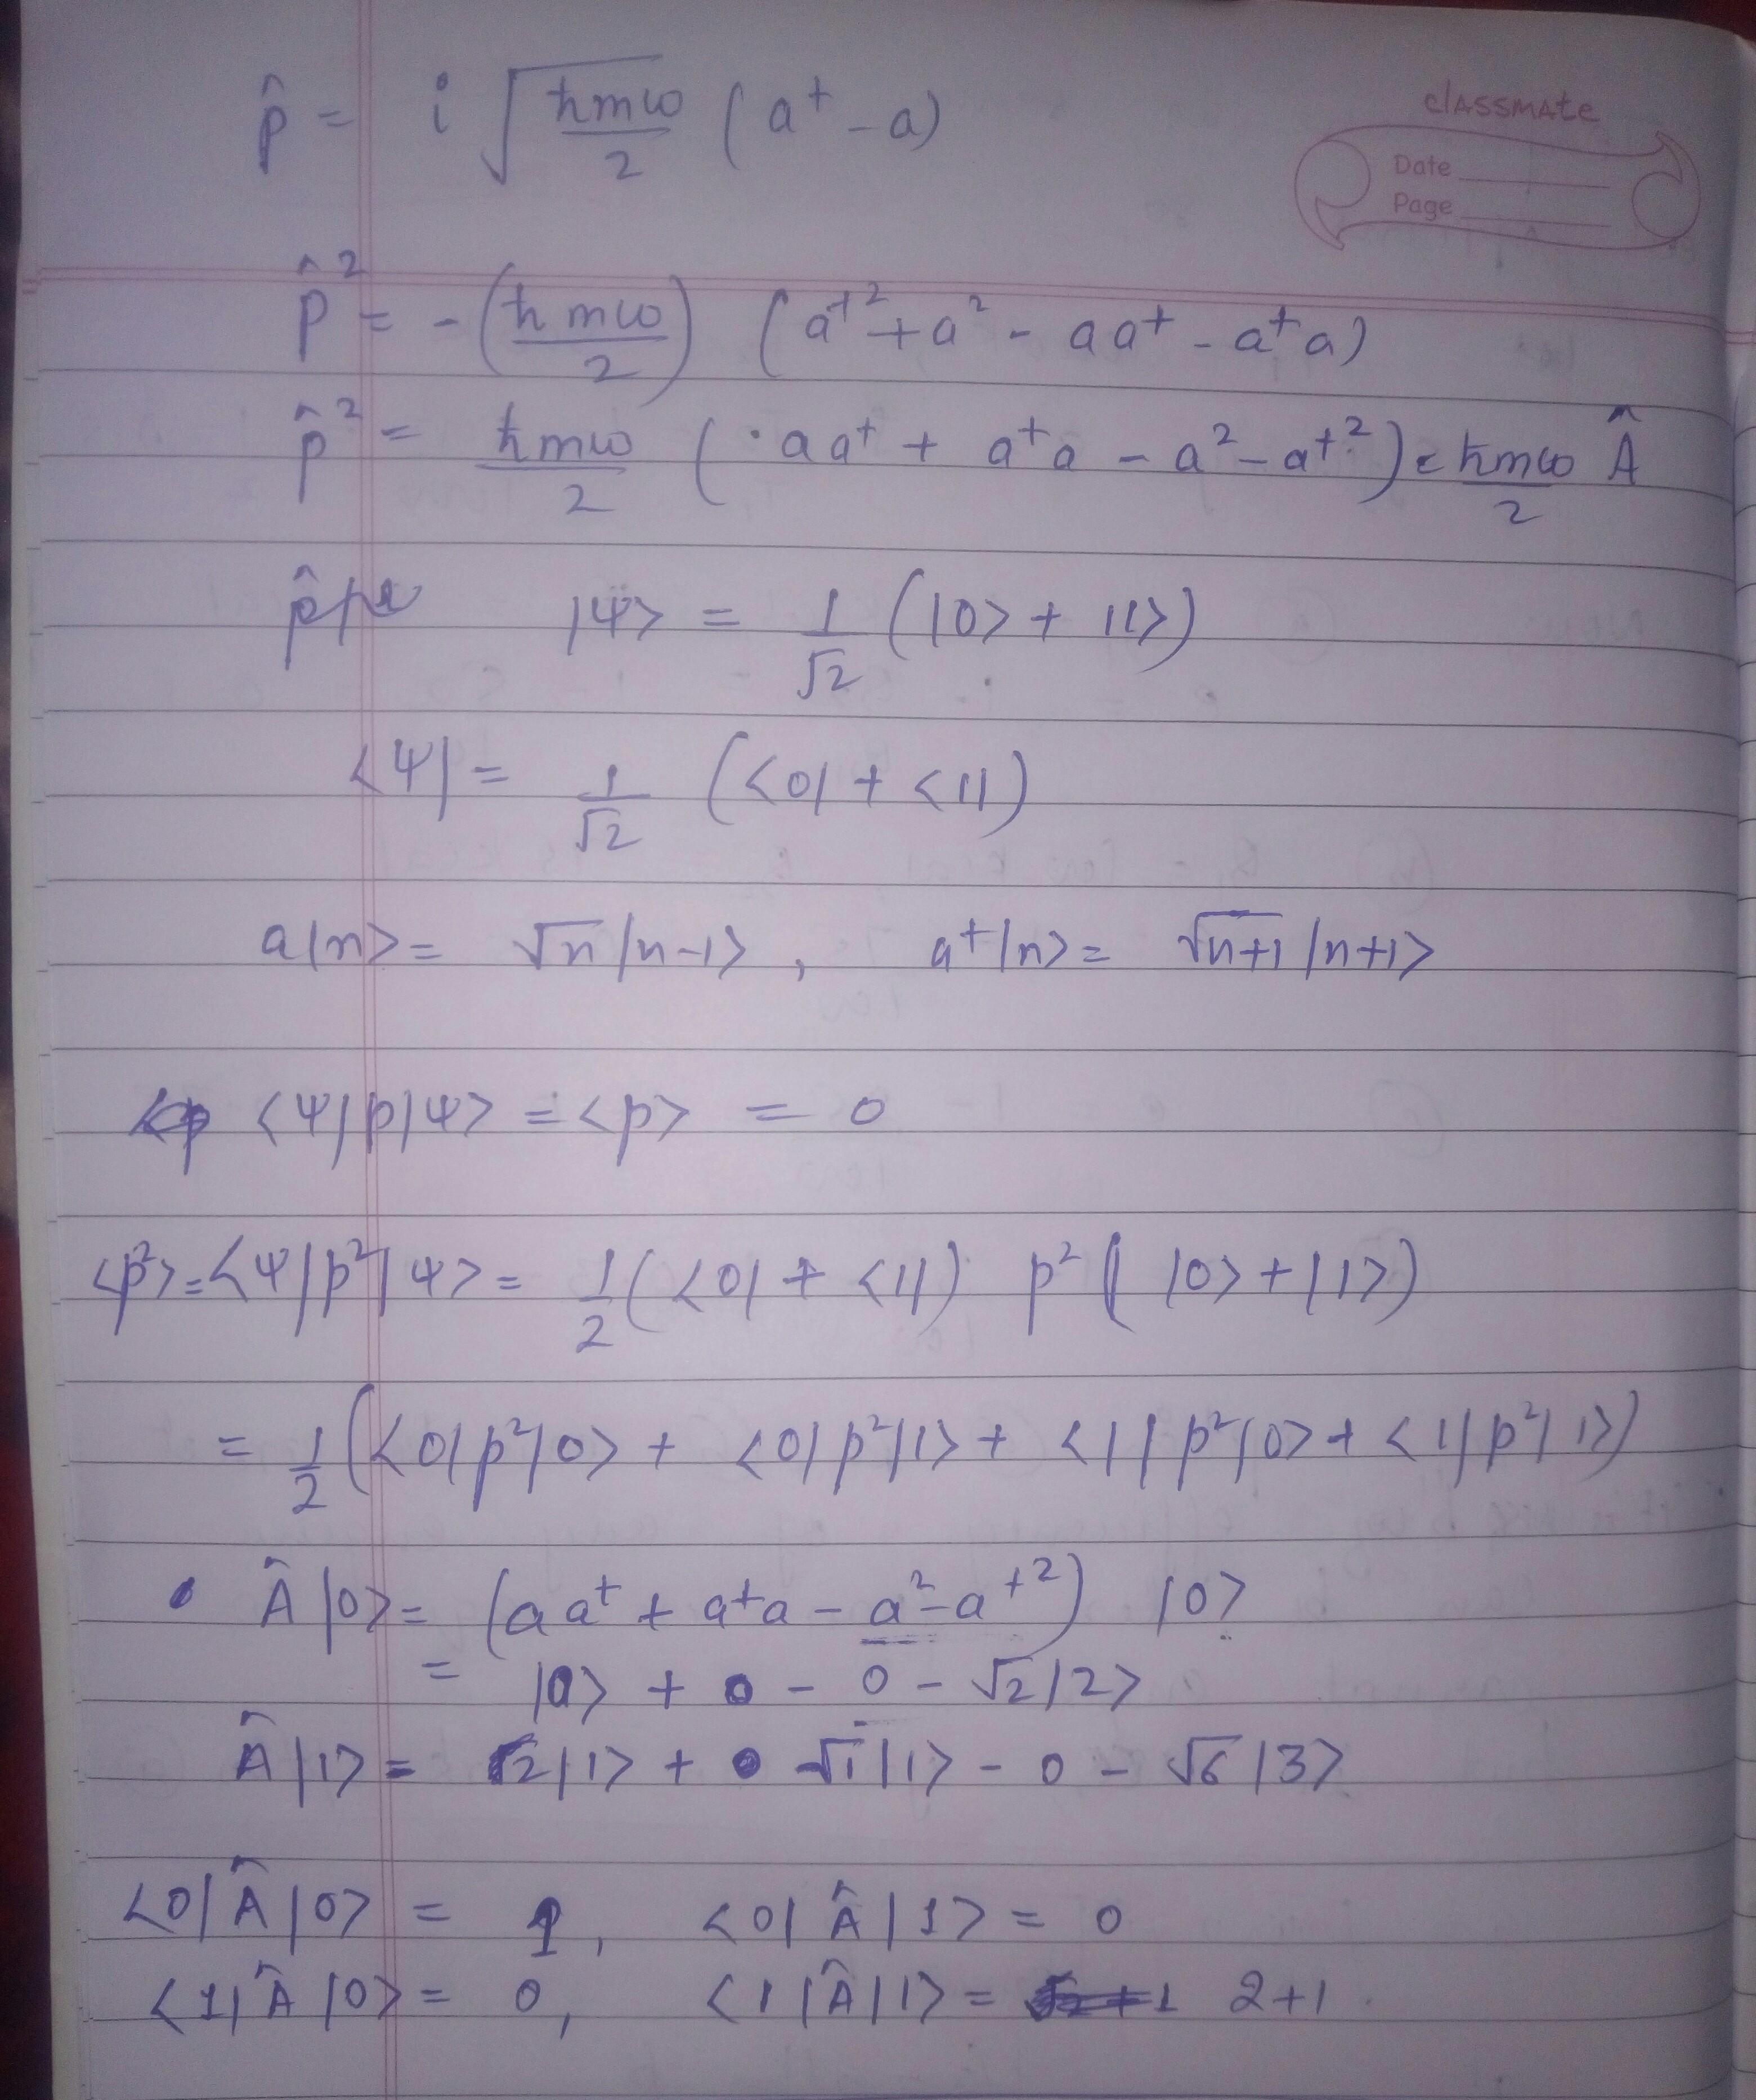 classmate
Date
Page
p̂ = i √(ħmω/2) (a† - a)
p̂² = -(ħmω/2) (a†² + a² - aa† - a†a)
p̂² = ħmω/2 (aa† + a†a - a² - a†²) = ħmω/2 Â
|ψ> = 1/√2 (|0> + |1>)
<ψ| = 1/√2 (<0| + <1|)
a|n> = √n |n-1> , a†|n> = √n+1 |n+1>
<ψ|p|ψ> = <p> = 0
<p²> = <ψ|p²|ψ> = 1/2 (<0| + <1|) p² (|0> + |1>)
= 1/2 (<0|p²|0> + <0|p²|1> + <1|p²|0> + <1|p²|1>)
Â|0> = (aa† + a†a - a² - a†²) |0>
= |0> + 0 - 0 - √2|2>
Â|1> = 2|1> + √1|1> - 0 - √6|3>
<0|Â|0> = 1, <0|Â|1> = 0
<1|Â|0> = 0, <1|Â|1> = 2+1